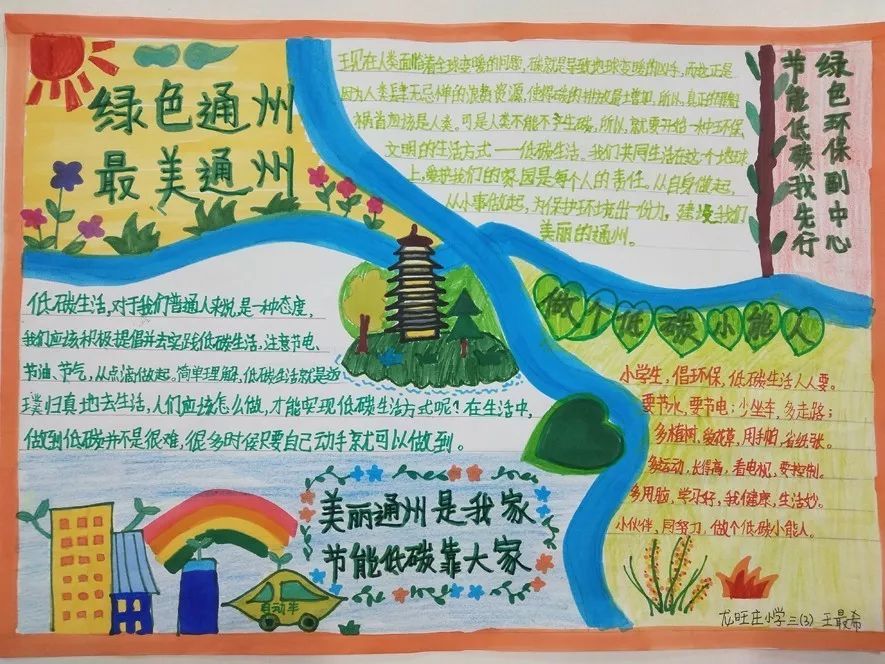 绿色通州
最美通州
现在人类面临着全球变暖的问题，碳就是导致地球变暖的凶手，而这正是
因为人类肆无忌惮的浪费资源，使得碳的排放量上曾加，所以，真正的罪魁
祸首应该是人类。可是人类不能不产生碳，所以，就要开始一种环保、
文明的生活方式——低碳生活。我们共同生活在这个地球
上，爱护我们的家园是每个人的责任。从自身做起，
从小事做起，为保护环境出一份力，建设我们
美丽的通州。
绿色环保副中心
节能低碳我先行
低碳生活，对于我们普通人来说，是一种态度，
我们应该积极提倡并去实践低碳生活，注意节电、
节油、节气，从点滴做起。简单理解，低碳生活就是返
璞归真地去生活，人们应该怎么做，才能实现低碳生活方式呢？在生活中，
做到低碳并不是很难，很多时候只要自己动手就可以做到。
做个低碳小能人
小学生，倡环保，低碳生活人人要。
要节水，要节电；少坐车，多走路；
多植树，爱花草，用手帕，省纸张。
多运动，长得高，看电视，要控制。
多用脑，学习好，我健康，生活妙。
小伙伴，同努力，做个低碳小能人。
美丽通州是我家
节能低碳靠大家
自动车
龙旺庄小学三(3) 王最希